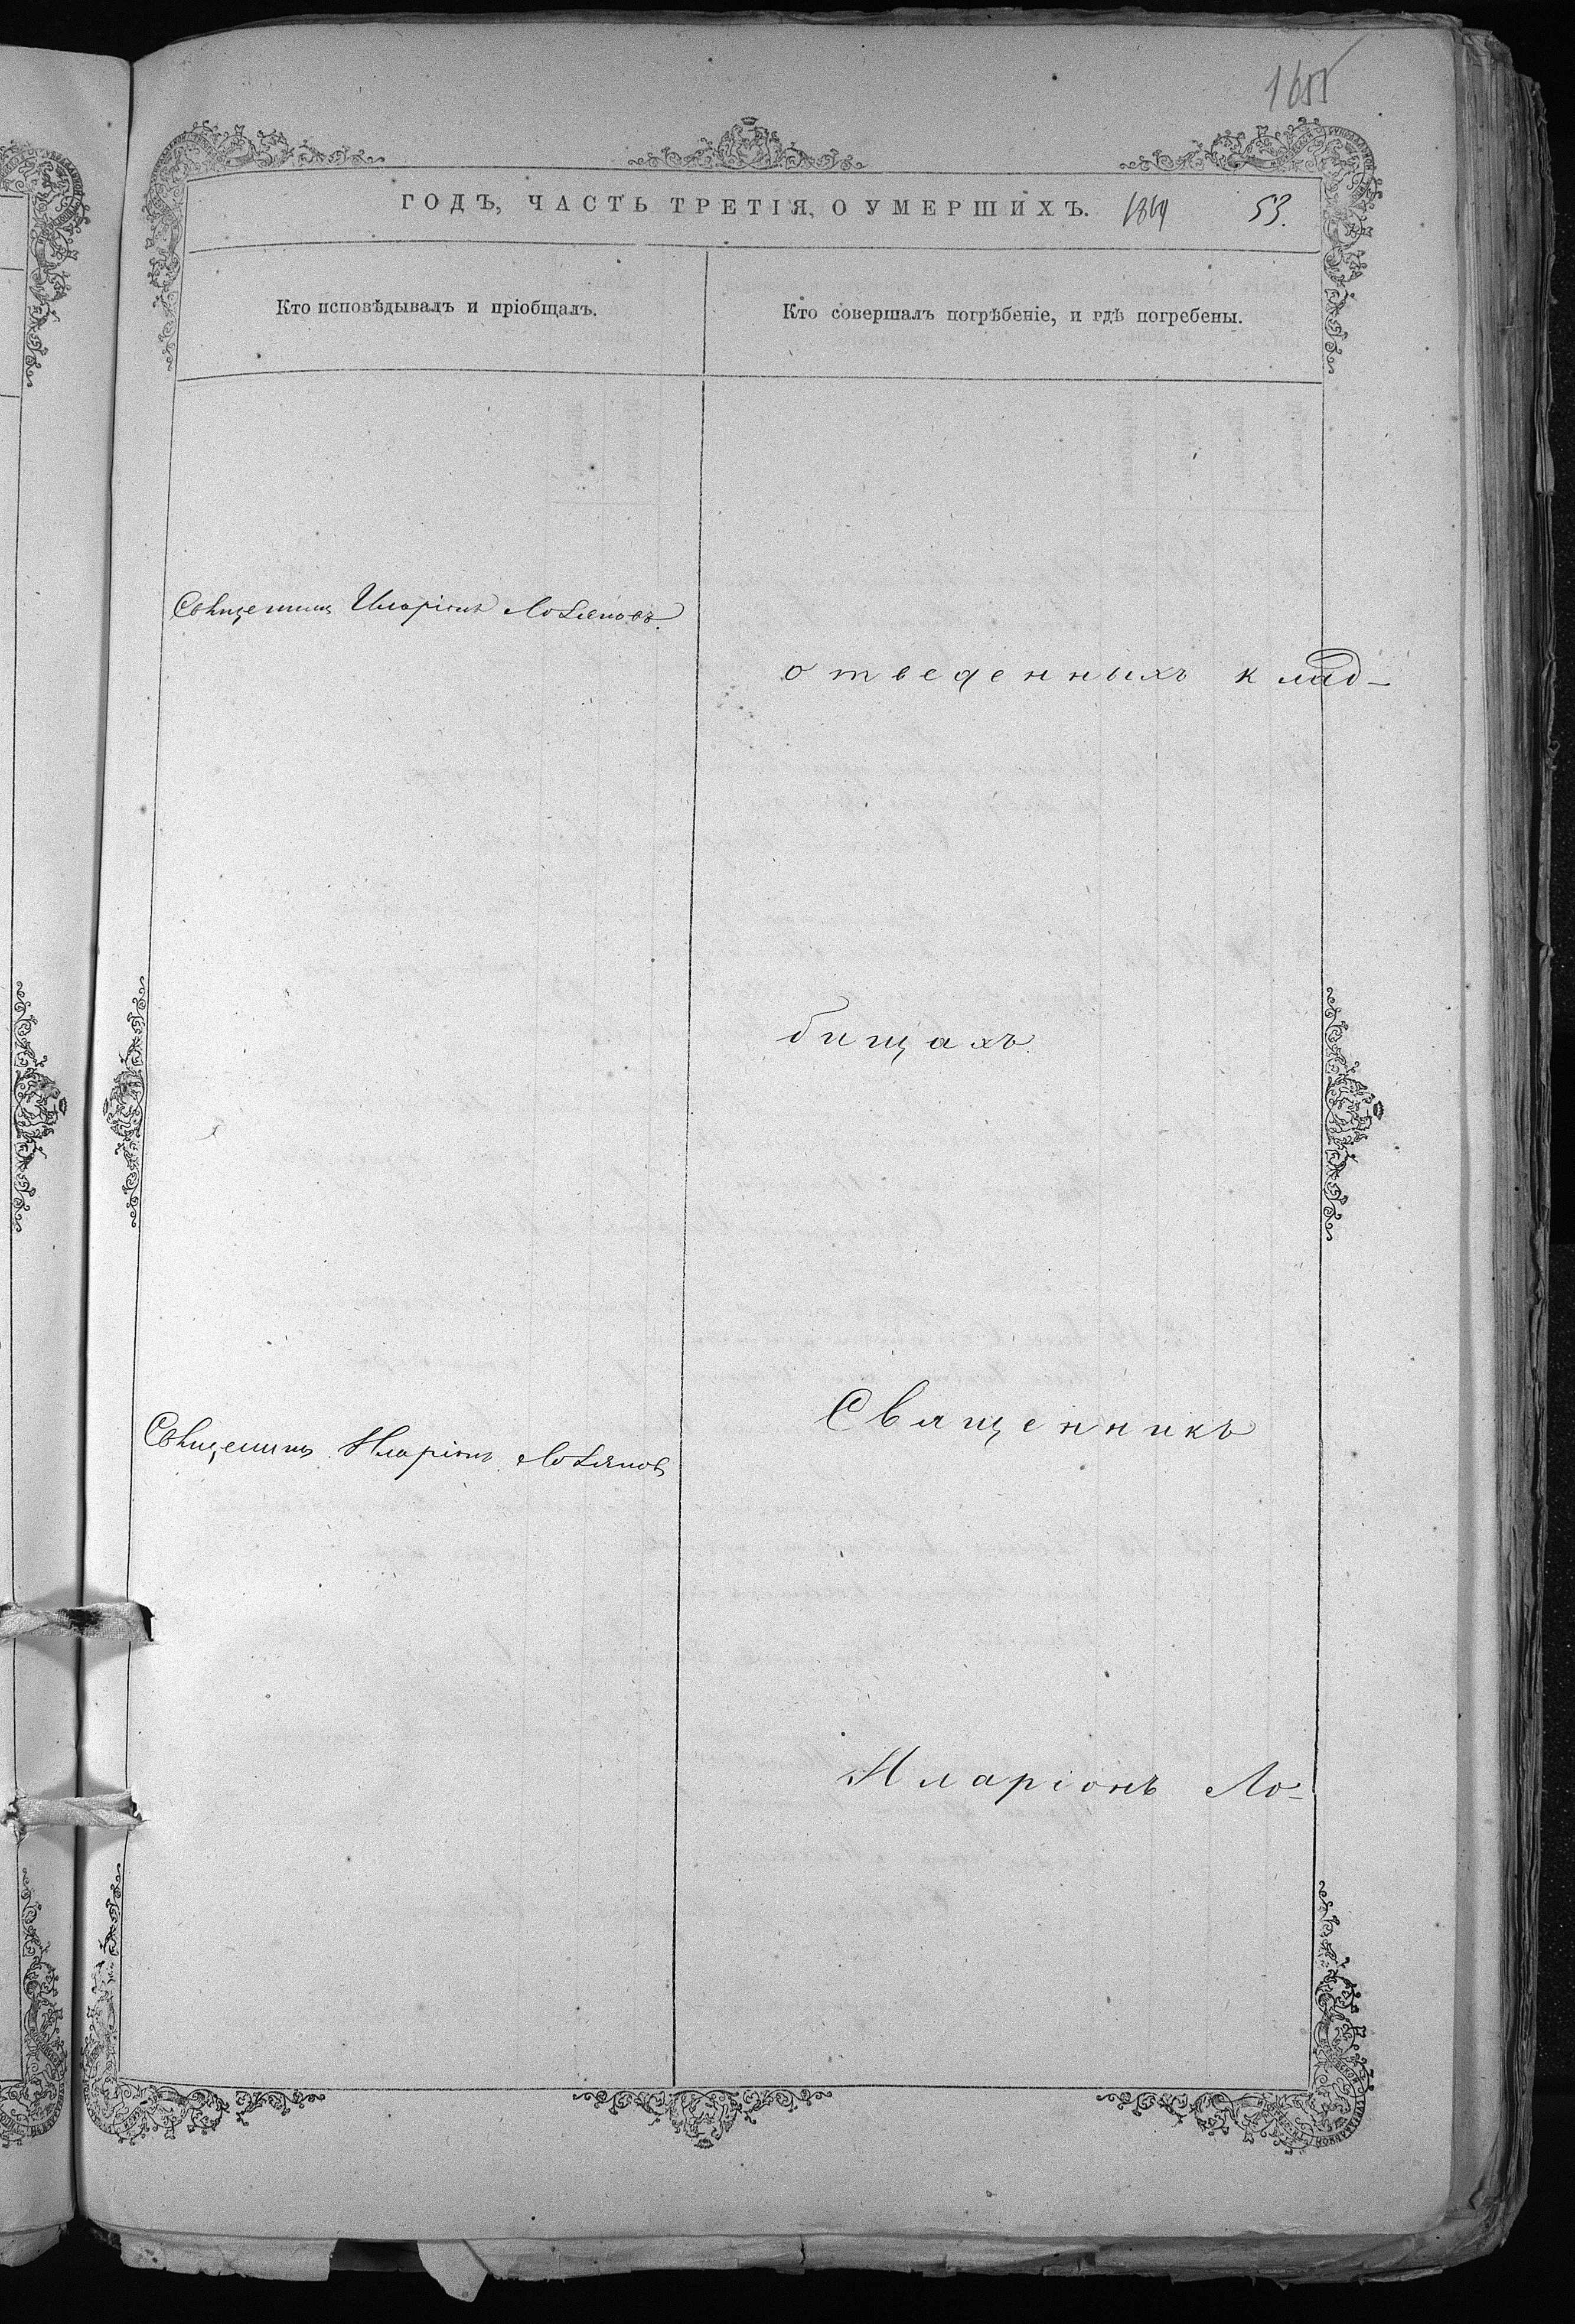 1655
ГОДЪ, ЧАСТЬ ТРЕТІЯ, О УМЕРШИХЪ. 1869 53.
Кто исповѣдывалъ и пріобщалъ.
Кто совершалъ погрѣбеніе, и гдѣ погребены.
Священникъ Иларіонъ
отведенныхъ клад-
бищахъ.
Священникъ
Священникъ Иларіонъ
Иларіонъ Ло-